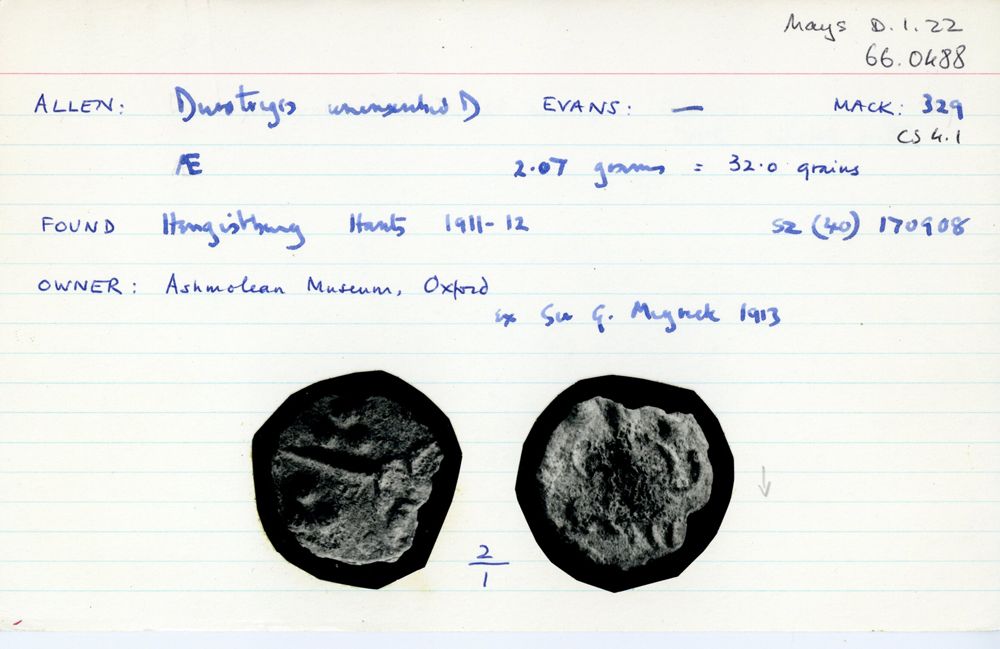 Mays D.1.22
66.0488
ALLEN: Durotriges uninscribed D EVANS: — MACK: 329
CS 4.1
Æ 2.07 grams = 32.0 grains
FOUND Hengistbury Hants 1911-12 SZ (40) 170908
OWNER: Ashmolean Museum, Oxford
ex Sir G. Meyrick 1913
2
1